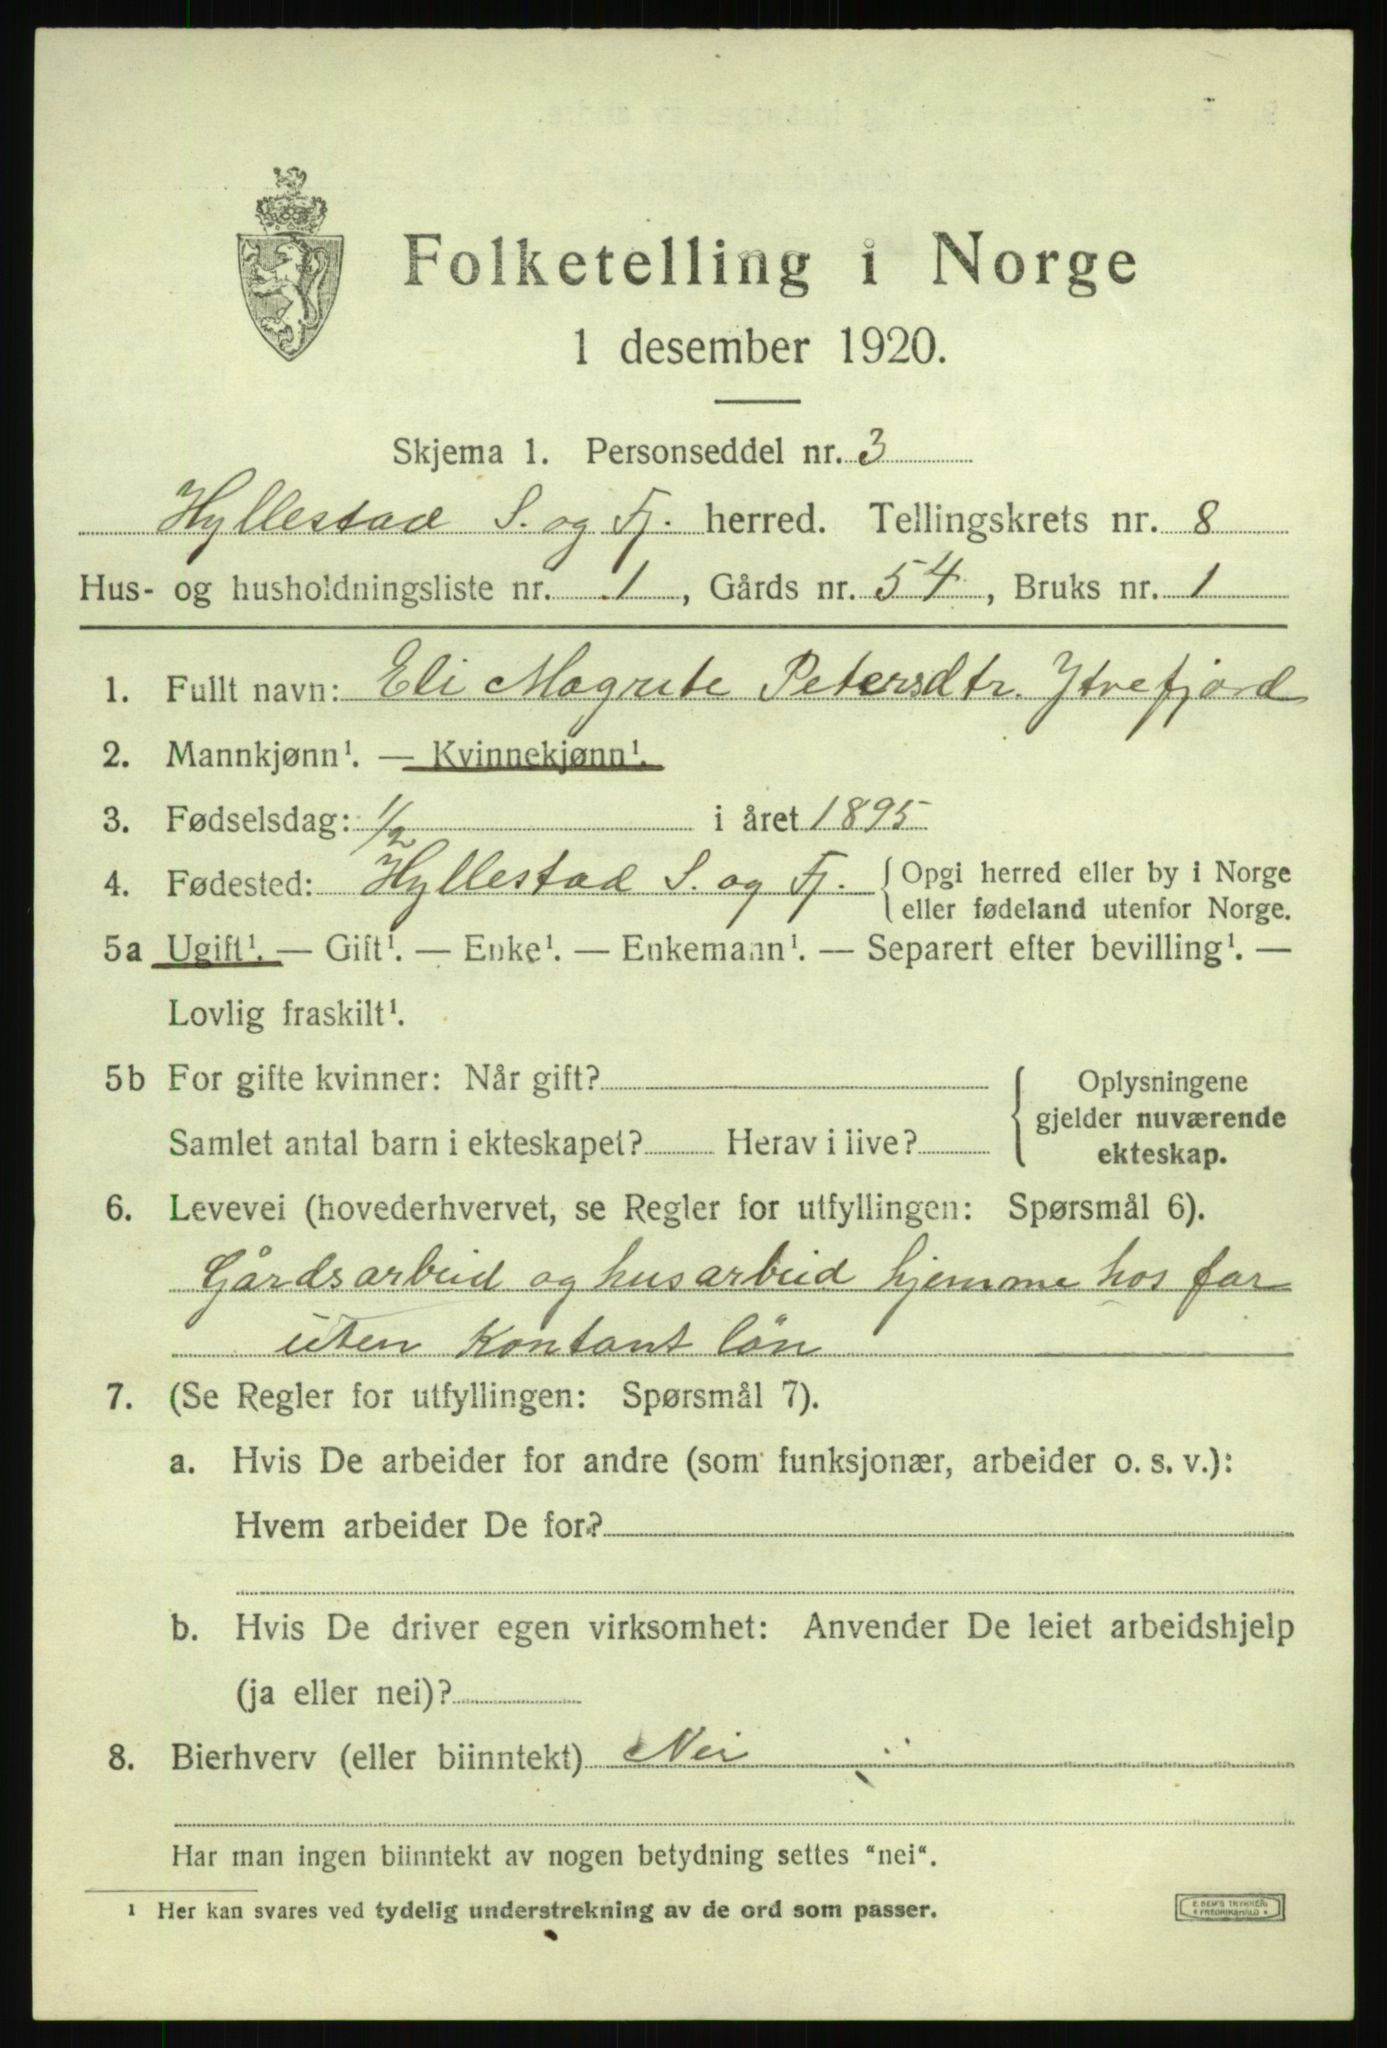 Folketelling i Norge
1 desember 1920.
Skjema 1. Personseddel nr. 3
Hyllestad S. og Fj. herred. Tellingskrets nr. 8
Hus- og husholdningsliste nr. 1, Gårds nr. 54, Bruks nr. 1
1. Fullt navn: Eli Magrete Petersdtr. Ytrefjord
2. Mannkjønn¹. — Kvinnekjønn¹.
3. Fødselsdag: 1/2 i året 1895
4. Fødested: Hyllestad S. og Fj. { Opgi herred eller by i Norge
eller fødeland utenfor Norge.
5a Ugift¹. — Gift¹. — Enke¹. — Enkemann¹. — Separert efter bevilling¹. —
Lovlig fraskilt¹.
5b For gifte kvinner: Når gift? { Oplysningene
gjelder nuværende
Samlet antal barn i ekteskapet? Herav i live?
ekteskap.
6. Levevei (hovederhvervet, se Regler for utfyllingen: Spørsmål 6).
Gårdsarbeid og husarbeid hjemme hos far
uten kontant løn
7. (Se Regler for utfyllingen: Spørsmål 7).
a. Hvis De arbeider for andre (som funksjonær, arbeider o. s. v.):
Hvem arbeider De for?
b. Hvis De driver egen virksomhet: Anvender De leiet arbeidshjelp
(ja eller nei)?
8. Bierhverv (eller biinntekt) Nei
Har man ingen biinntekt av nogen betydning settes "nei".
¹ Her kan svares ved tydelig understrekning av de ord som passer.
E. SEM'S TRYKKERI
* FREDRIKSHALD *